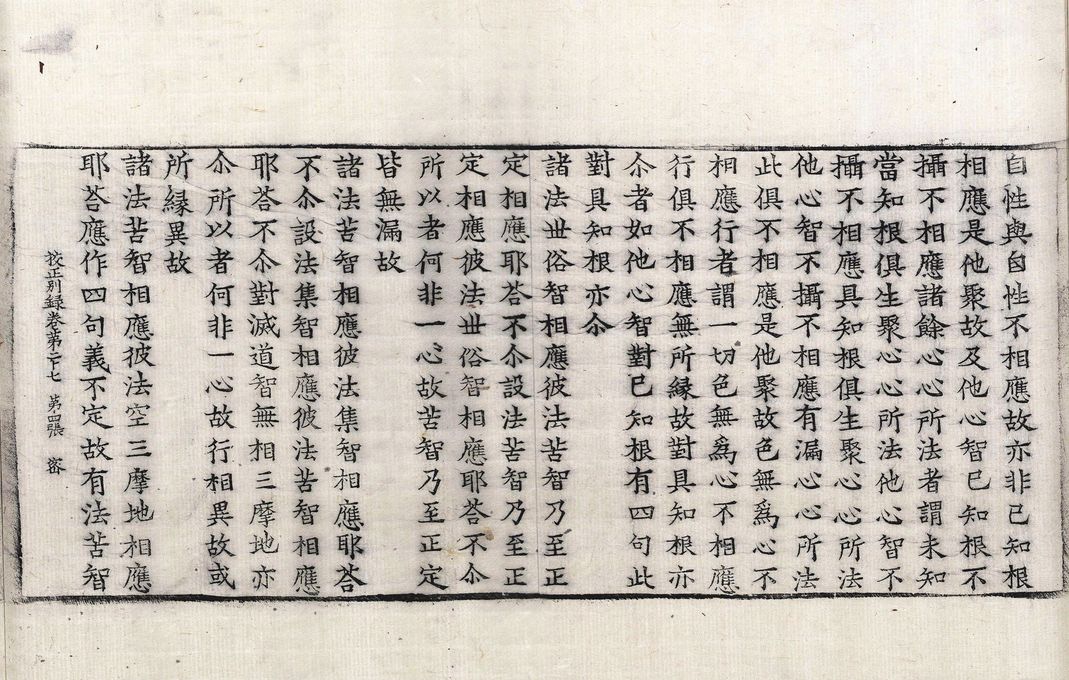 自性與自性不相應故亦非已知根
相應是他聚故及他心智已知根不
攝不相應諸餘心心所法者謂未知
當知根俱生聚心心所法他心智不
攝不相應具知根俱生聚心心所法
他心智不攝不相應有漏心心所法
此俱不相應是他聚故色無爲心不
相應行者謂一切色無爲心不相應
行俱不相應無所緣故對具知根亦
尒者如他心智對已知根有四句此
對具知根亦尒
諸法世俗智相應彼法苦智乃至正
定相應耶荅不尒設法苦智乃至正
定相應彼法世俗智相應耶荅不尒
所以者何非一心故苦智乃至正定
皆無漏故
諸法苦智相應彼法集智相應耶荅
不尒設法集智相應彼法苦智相應
耶荅不尒對滅道智無相三摩地亦
尒所以者何非一心故行相異故或
所緣異故
諸法苦智相應彼法空三摩地相應
耶荅應作四句義不定故有法苦智
校正別録卷第二十七 第四張 密